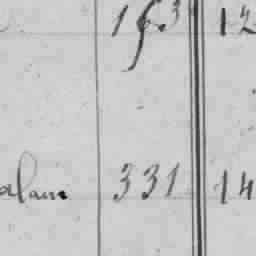 163 12
alam 331 14